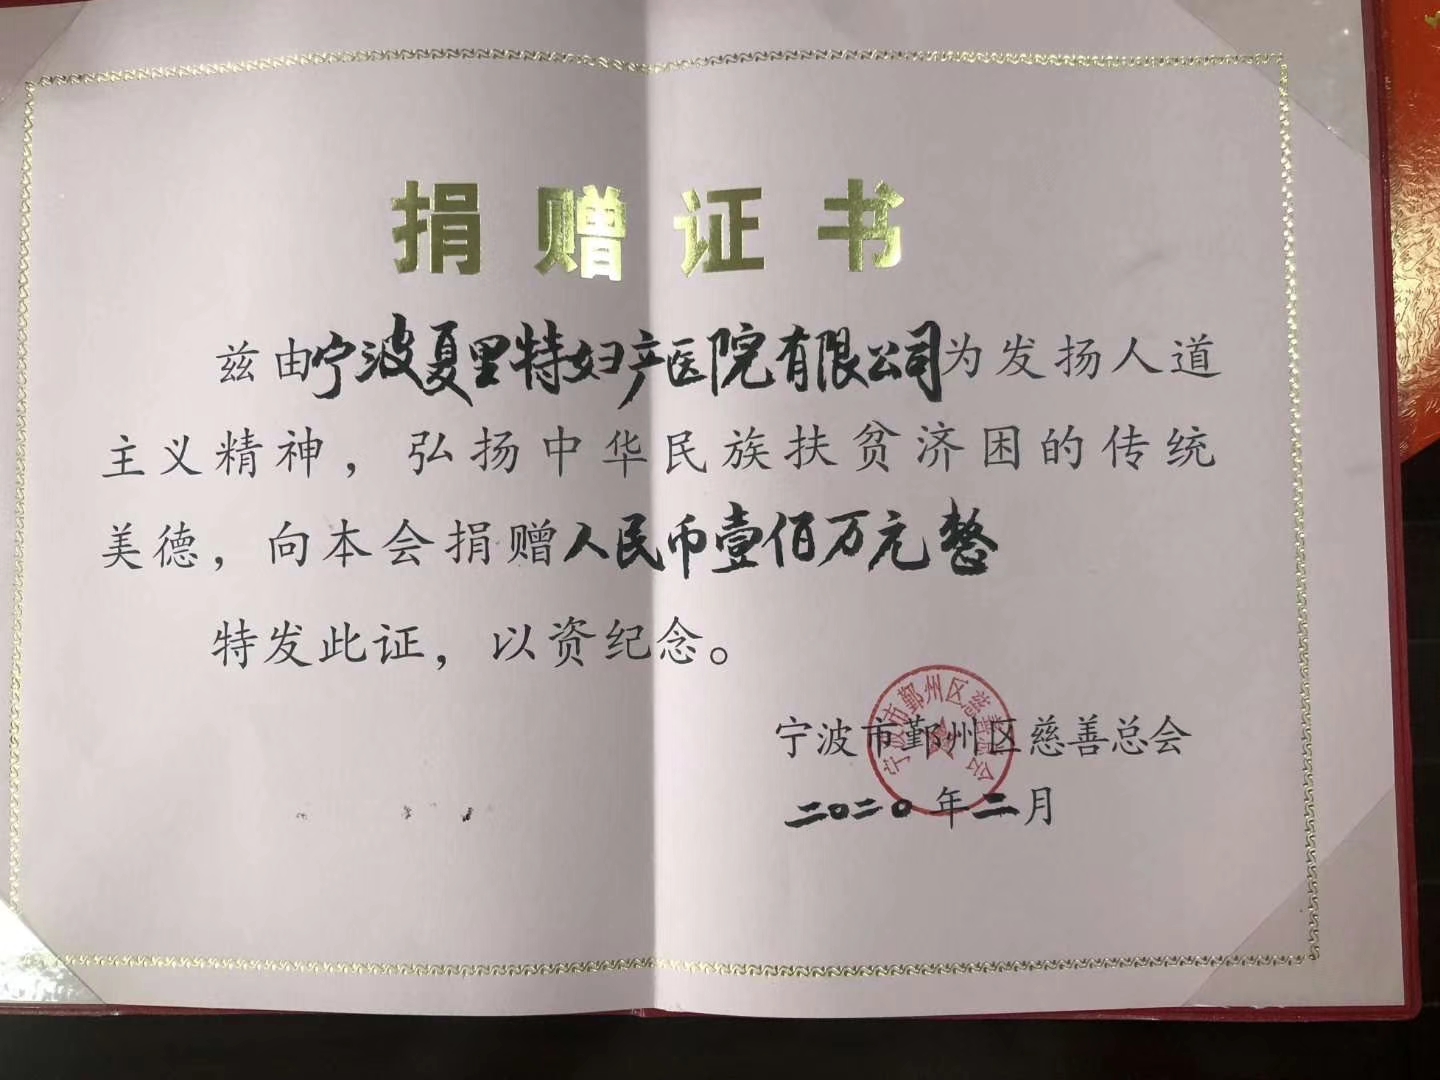 捐赠证书
兹由宁波夏里特妇产医院有限公司为发扬人道
主义精神，弘扬中华民族扶贫济困的传统
美德，向本会捐赠人民币壹佰万元整
特发此证，以资纪念。
宁波市鄞州区慈善总会
宁波市鄞州区慈善总会
二〇二〇年二月